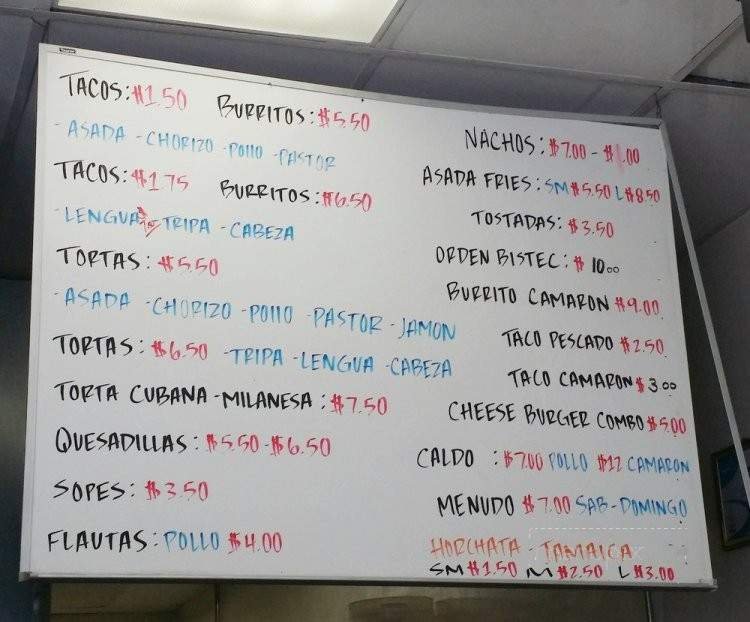 TACOS: $1.50 BURRITOS: $5.50
- ASADA - CHORIZO - POllO - PASTOR
TACOS: $1.75 BURRITOS: $6.50
- LENGUA - TRIPA - CABEZA
TORTAS: $5.50
- ASADA - CHORIZO - POllO - PASTOR - JAMON
TORTAS: $6.50 - TRIPA - LENGUA - CABEZA
TORTA CUBANA - MILANESA: $7.50
QUESADILLAS: $5.50 - $6.50
SOPES: $3.50
FLAUTAS: POLLO $4.00
NACHOS: $7.00 -
ASADA FRIES: SM $5.50 L $8.50
TOSTADAS: $3.50
ORDEN BISTEC: $10.00
BURRITO CAMARON $9.00
TACO PESCADO $2.50
TACO CAMARON $3.00
CHEESE BURGER COMBO $5.00
CALDO : $7.00 POLLO $12 CAMARON
MENUDO $7.00 SAB - DOMINGO
HORCHATA - TAMAICA
SM $1.50 M $2.50 L $3.00